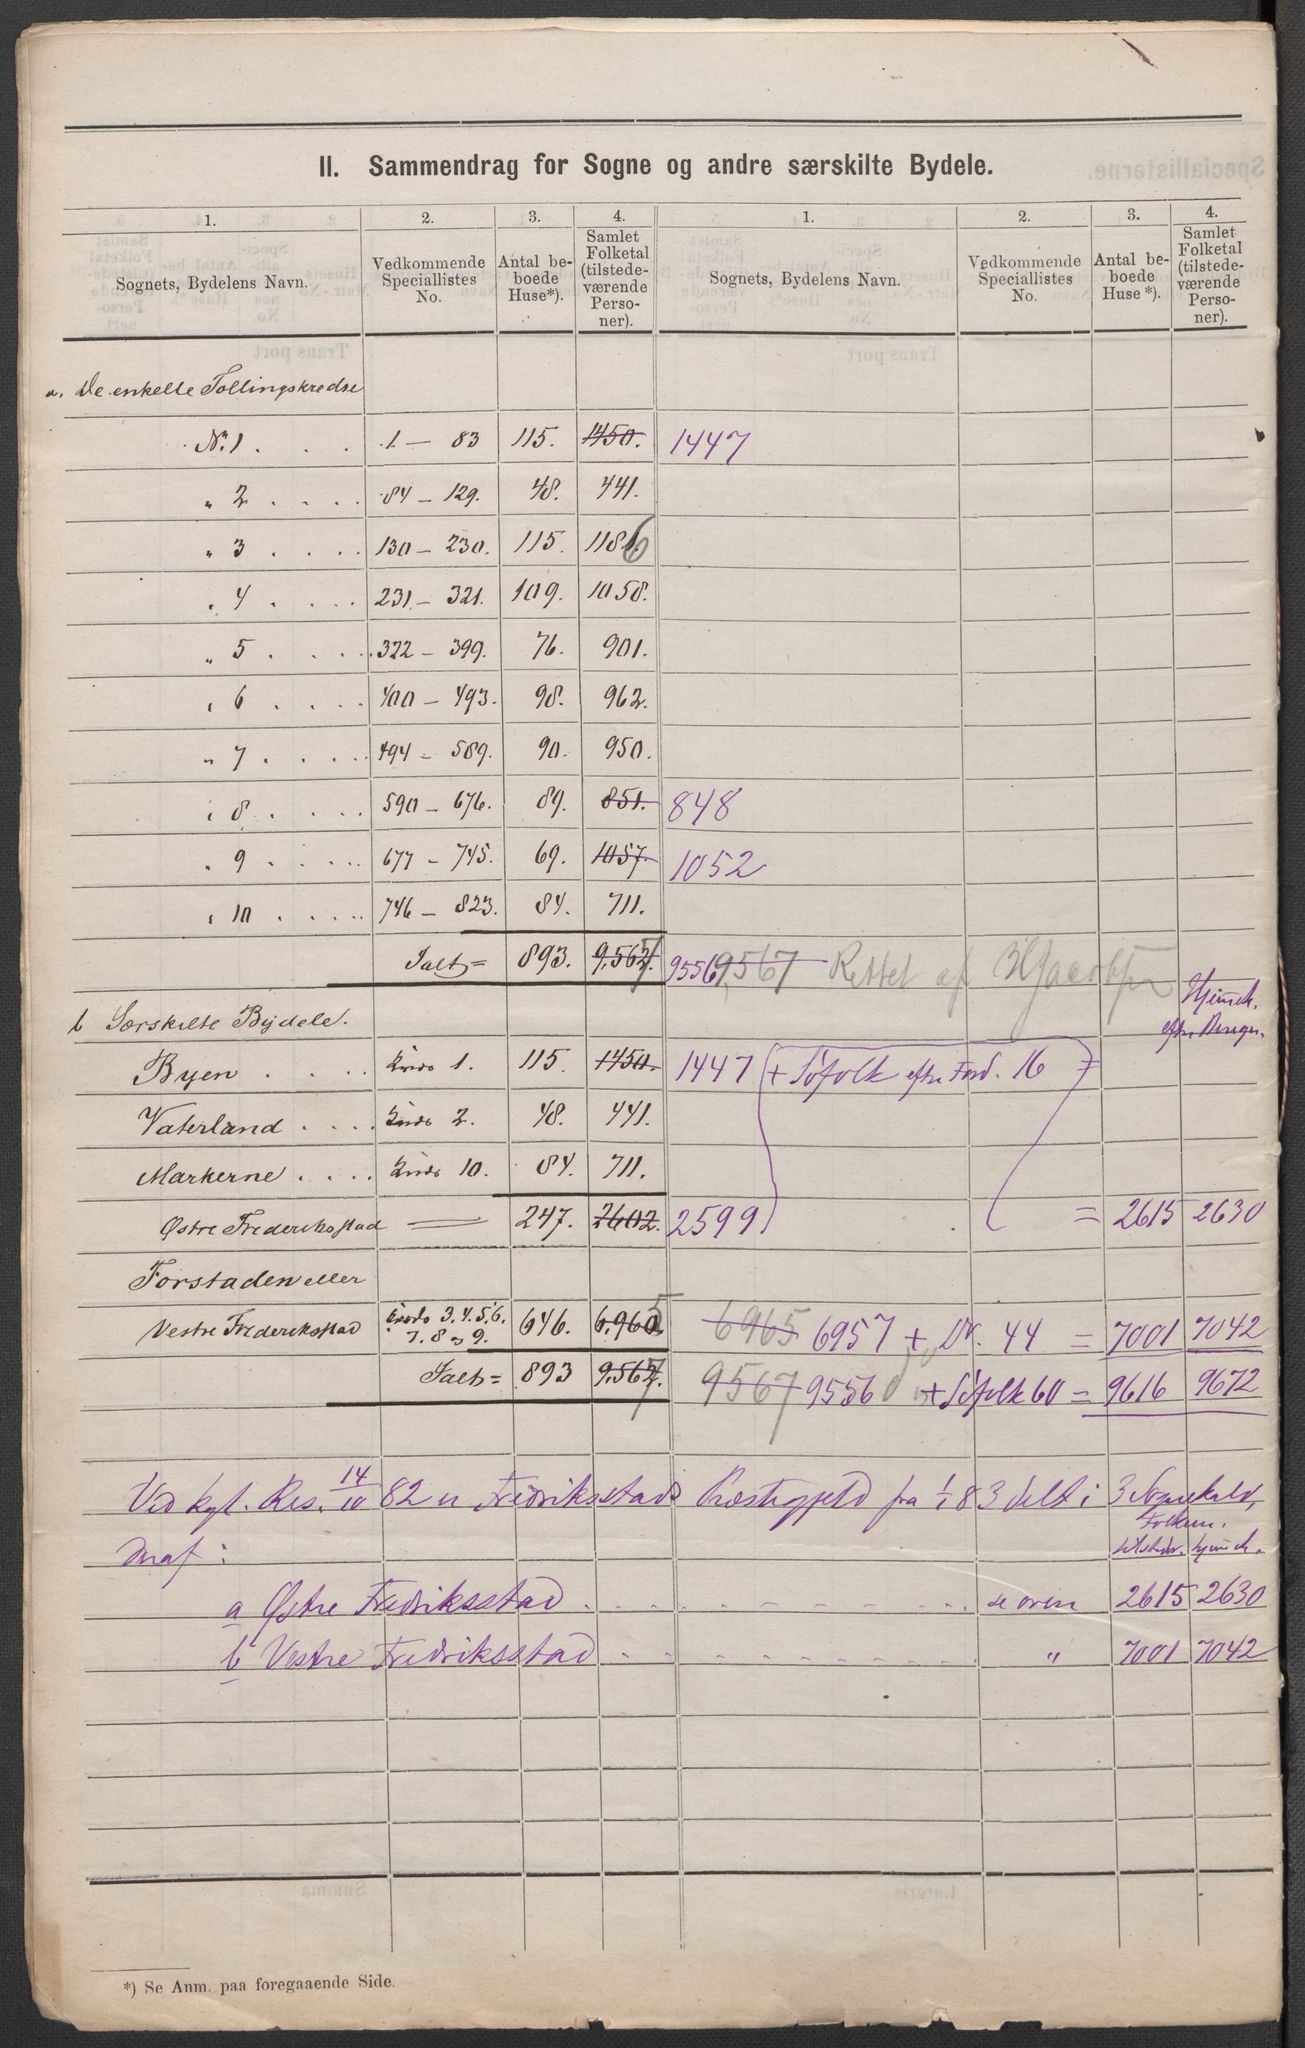 II. Sammendrag for Sogne og andre særskilte Bydele.
1. 2. 3. 4. 1. 2. 3. 4.
Sognets, Bydelens Navn. Vedkommende Speciallistes No. Antal beboede Huse*). Samlet Folketal (tilstedeværende Personer). Sognets, Bydelens Navn. Vedkommende Speciallistes No. Antal beboede Huse*). Samlet Folketal (tilstedeværende Personer).
a. De enkelte Tællingskredse
Nr. 1 . . . 1 — 83 115. 1450. 1447
" 2 . . . . 84 — 129. 48. 441.
" 3 . . . . 130 — 230. 115. 1186
" 4 . . . . 231 — 321. 109. 1058.
" 5 . . . . 322 — 399. 76. 901.
" 6 . . . . 400 — 493. 98. 962.
" 7 . . . . 494 — 589. 90. 950.
" 8 . . . . 590 — 676. 89. 851. 848
" 9 . . . . 677 — 745. 69. 1057. 1052
" 10 . . . . 746 — 823. 84. 711.
Ialt = 893. 9.567. 9556 9567 Rettet af
b Særskilte Bydele.
Byen . . . . Kreds 1. 115. 1450. 1447 + Söfolk efter Ford. 16
Vaterland . . . . Kreds 2. 48. 441.
Markerne . . . . Kreds 10. 84. 711.
Østre Frederiksstad — 247. 2602. 2599 = 2615 2630
Forstaden eller
Vestre Frederiksstad Kreds 3. 4. 5. 6. 7. 8 og 9. 646. 6.965 6965 6957 + Do. 44 = 7001 7042
Ialt = 893 9.567. 9567 9556 + Söfolk 60 = 9616 9672
Ved kgl. Res. 14/10 82 er Fredriksstads Præstegjeld fra 1/1 83 delt i 3 Sognekald,
Folkem.
hvoraf : tilstedev. hjemh.
a Østre Fredriksstad . . . . . . . . . se oven 2615 2630
b Vestre Fredriksstad . . . . . . . . . " 7001 7042
*) Se Anm. paa foregaaende Side.